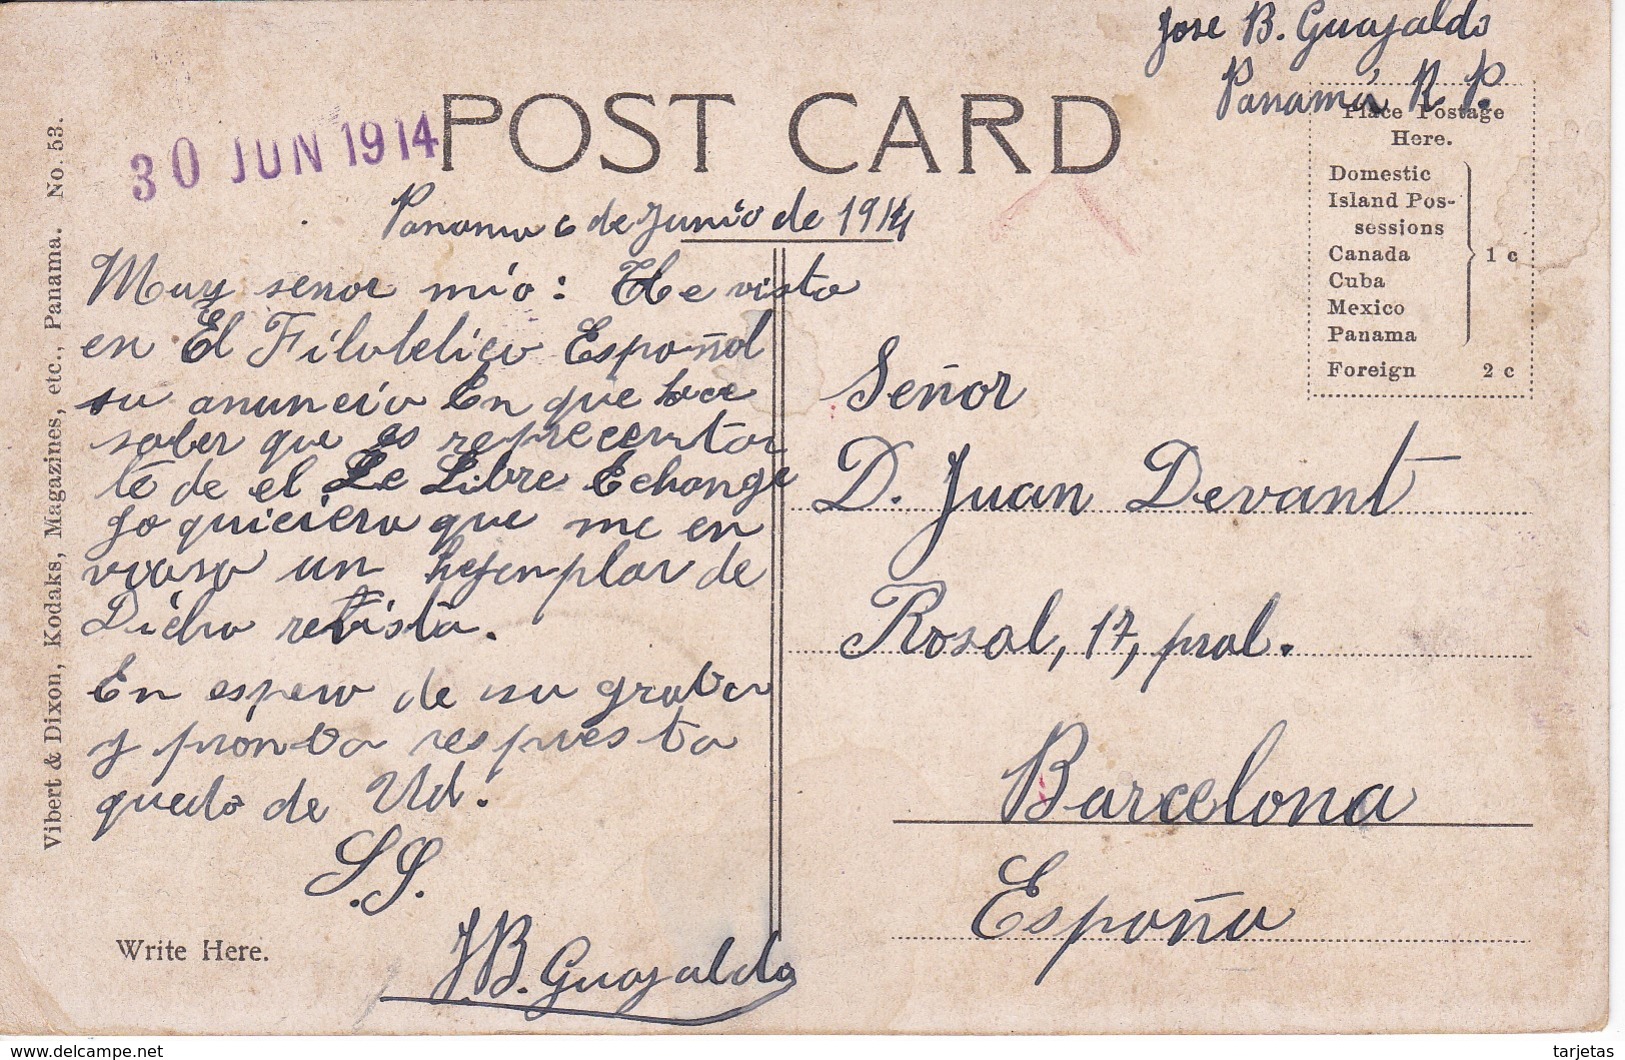 Jose B. Guajaldo
Panamá, R. P.
POST CARD
30 JUN 1914
Place Postage
Here.
Domestic
Island Pos-
sessions
Canada
Cuba
Mexico
Panama
1 c
Foreign 2 c
Vibert & Dixon, Kodaks, Magazines, etc., Panama. No. 53.
Panama 6 de Junio de 1914
Muy senor mío: He visto
en El Filatelico Español
su anuncio En que hace
saber que es reprecentan
te de el Le Libre Echange
Jo quiciera que me en
viara un hejemplar de
Dicha revista.
En espera de su grata
y pronta respuesta
quedo de Ud.
S.S.
J.B. Guajaldo
Write Here.
Señor
D. Juan Devant
Rosal, 17, pral.
Barcelona
España
tarjetas
https://www.delcampe.net